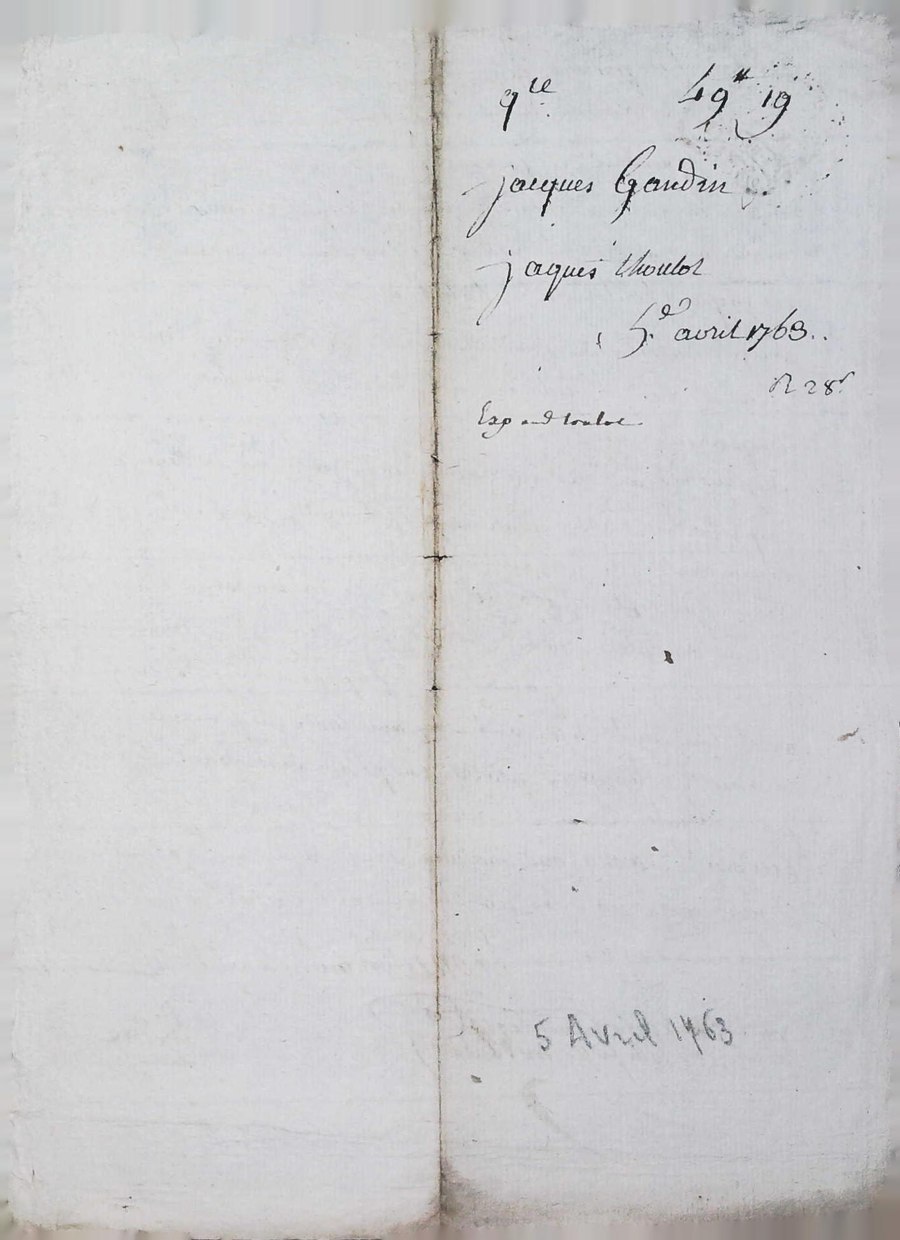 9ce 49# 19
jacques Gaudin.
jaques thoulot
5.e avril 1763..
R 28s
Exp
5 Avril 1763